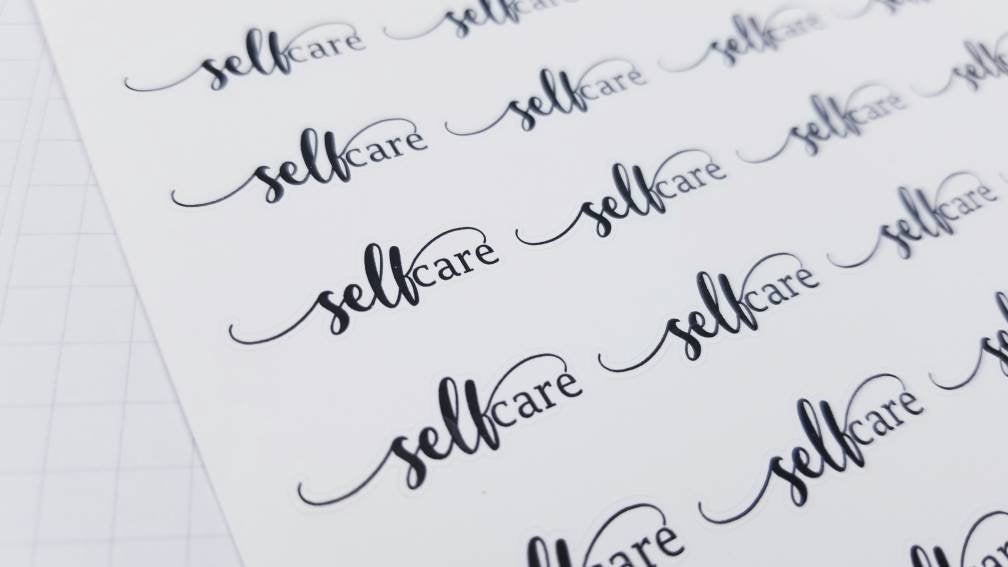 selfcare selfcare
selfcare selfcare selfcare
selfcare selfcare selfcare self
selfcare selfcare selfcare
selfcare selfcare